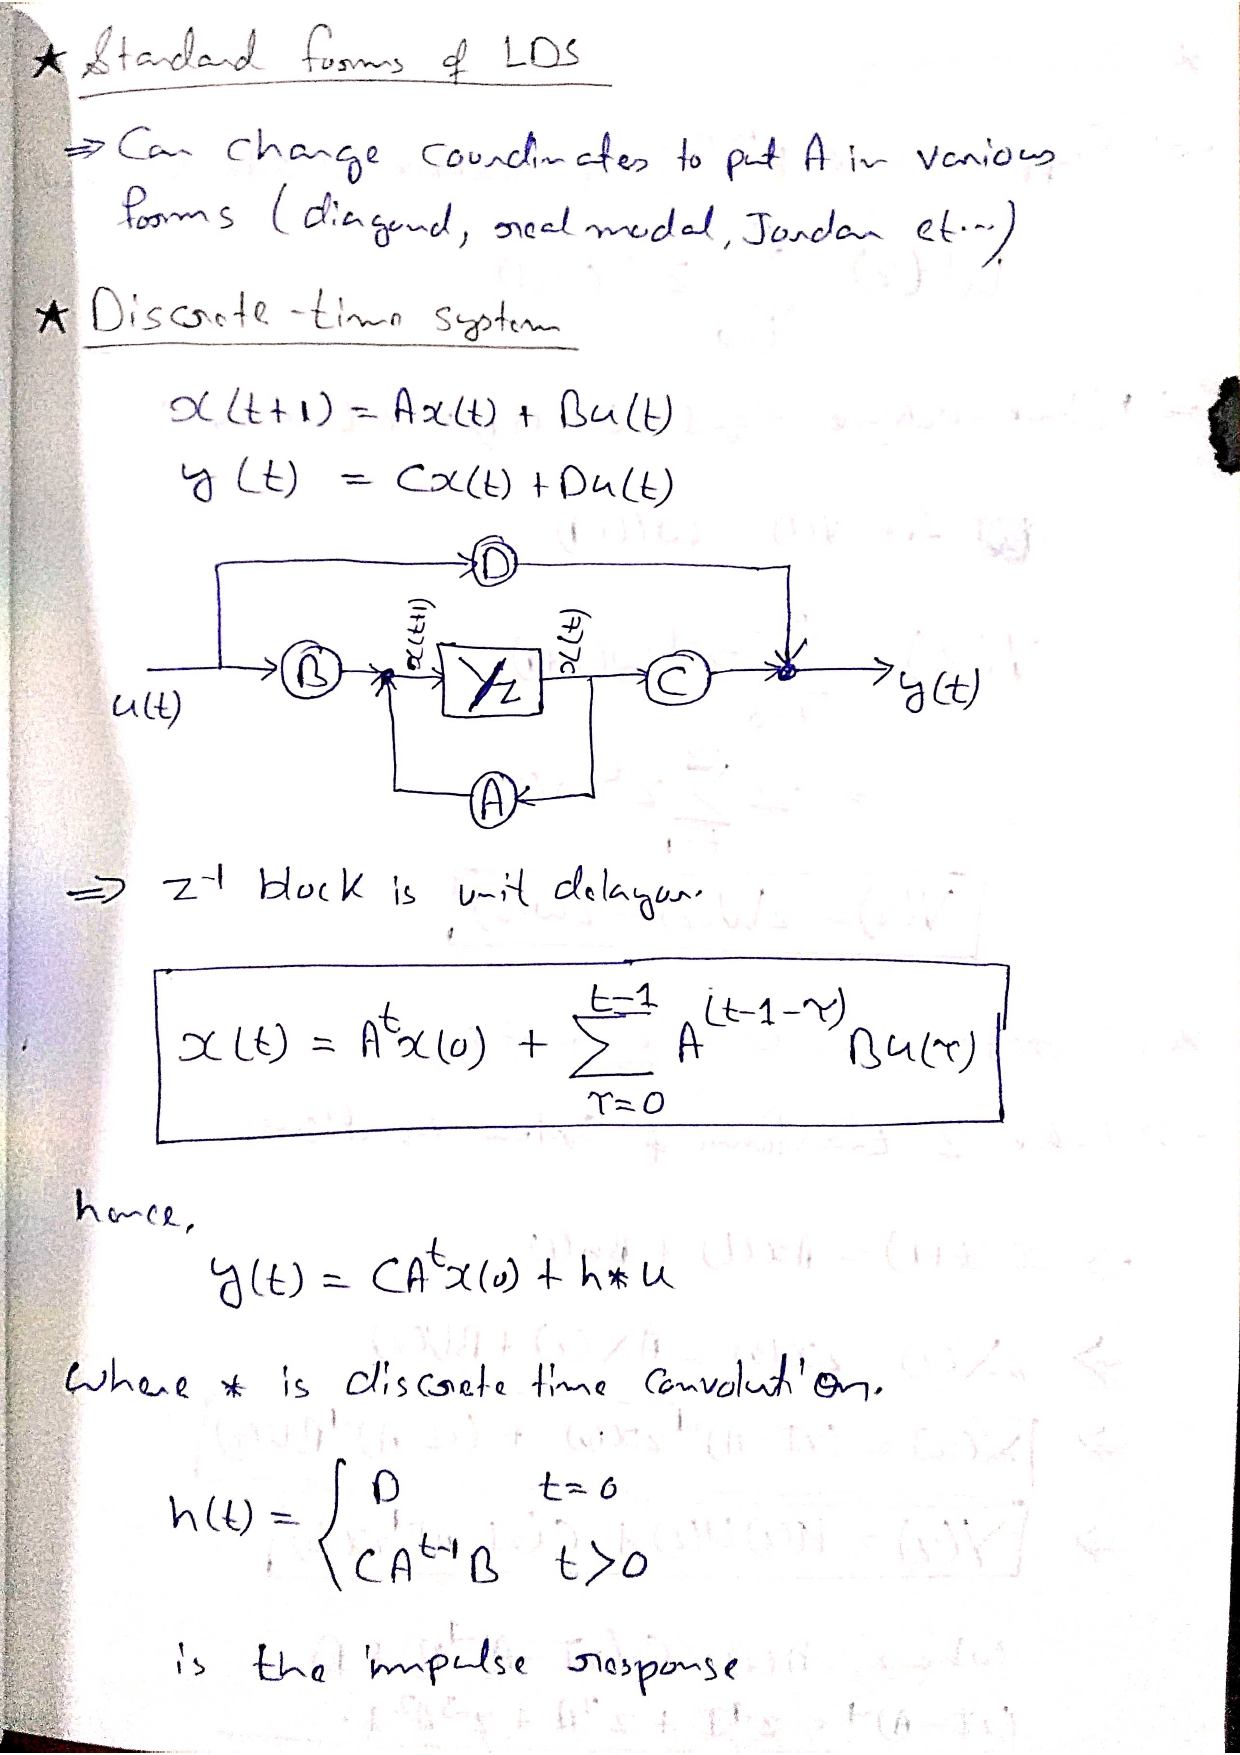 ★ Standard forms of LDS
⇒ Can change coordinates to put A in various
forms (diagonal, real modal, Jordan etc...)
★ Discrete-time system
x(t+1) = Ax(t) + Bu(t)
y(t) = Cx(t) + Du(t)
D
x(t+1)
x(t)
B
1/z
C
y(t)
u(t)
A
⇒ z⁻¹ block is unit delayer.
x(t) = Aᵗx(0) + ∑_{τ=0}^{t-1} A^{(t-1-τ)} Bu(τ)
hence,
y(t) = CAᵗx(0) + h * u
where * is discrete time convolution.
h(t) = { D t=0
CA^{t-1}B t>0
is the impulse response